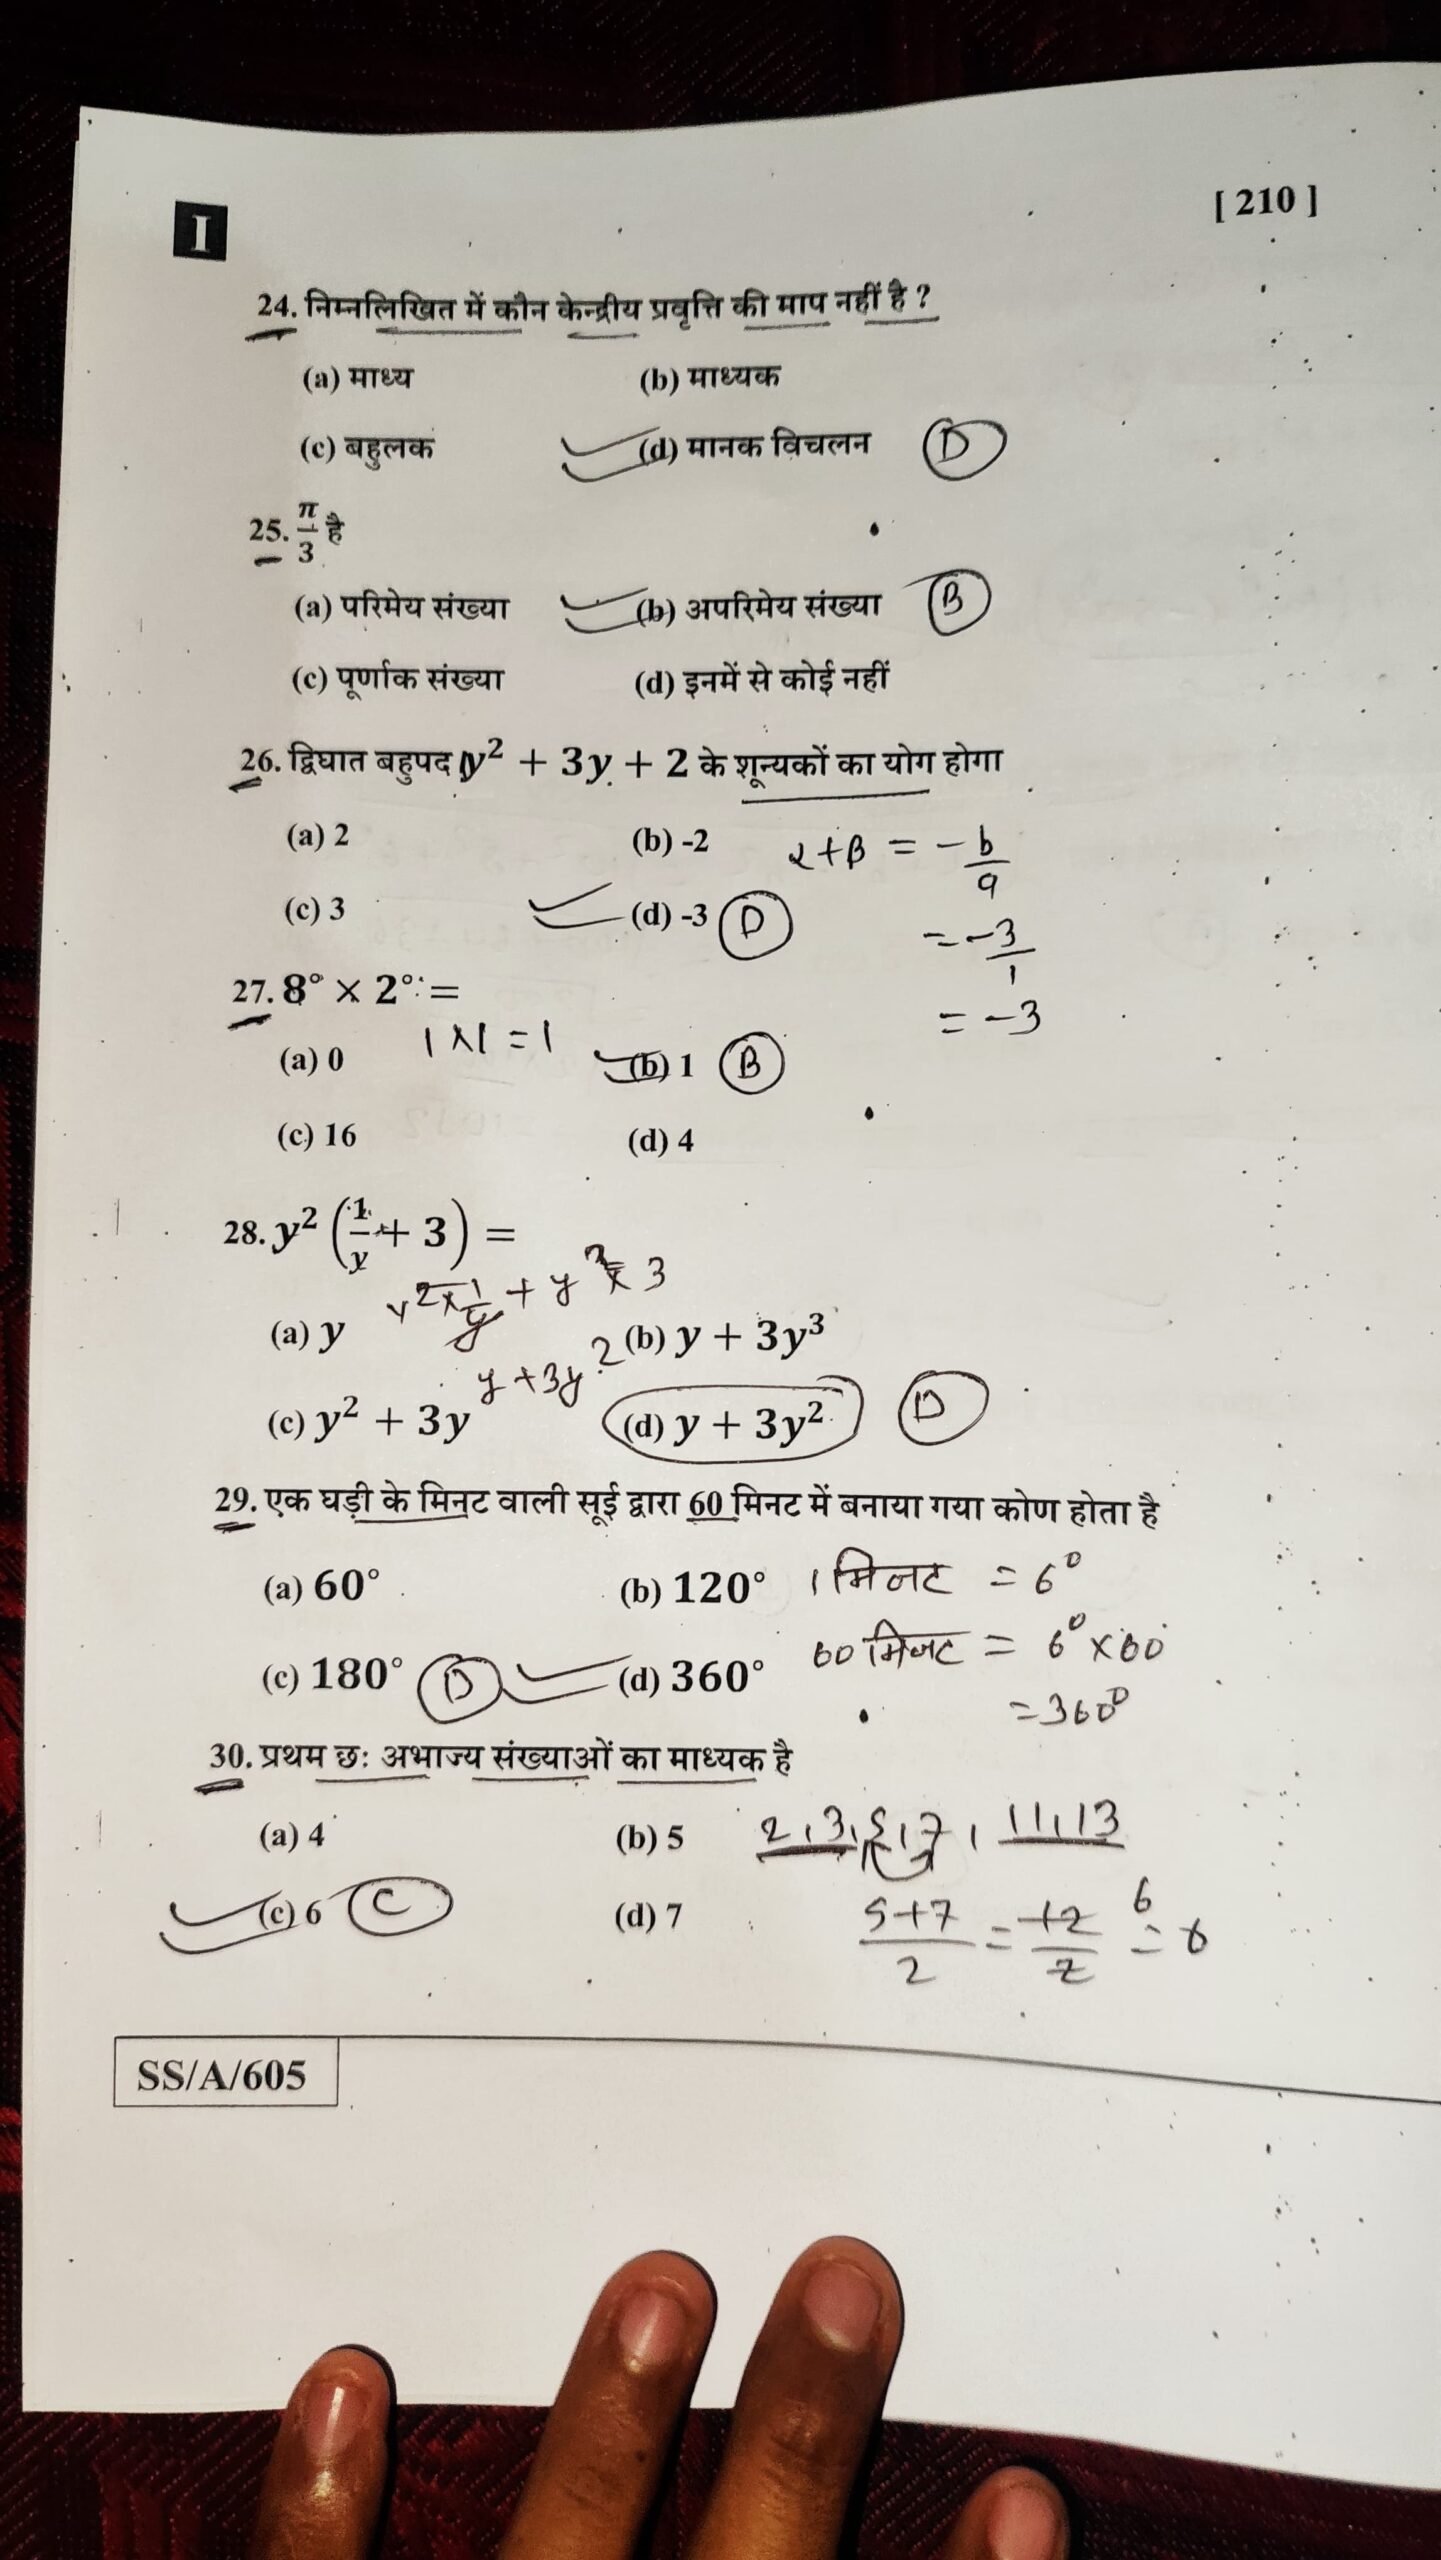 I
[ 210 ]
24. निम्नलिखित में कौन केन्द्रीय प्रवृत्ति की माप नहीं है ?
(a) माध्य (b) माध्यक
(c) बहुलक (d) मानक विचलन D
25. π/3 है
(a) परिमेय संख्या (b) अपरिमेय संख्या B
(c) पूर्णाक संख्या (d) इनमें से कोई नहीं
26. द्विघात बहुपद y² + 3y + 2 के शून्यकों का योग होगा
(a) 2 (b) -2 α+β = -b/a
(c) 3 (d) -3 D = -3/1
= -3
27. 8° × 2° =
1×1 = 1
(a) 0 (b) 1 B
(c) 16 (d) 4
28. y² (1/y + 3) =
y² × 1/y + y² × 3
(a) y (b) y + 3y³
y + 3y²
(c) y² + 3y (d) y + 3y² D
29. एक घड़ी के मिनट वाली सूई द्वारा 60 मिनट में बनाया गया कोण होता है
(a) 60° (b) 120° 1 मिनट = 6°
(c) 180° D (d) 360° 60 मिनट = 6° × 60
= 360°
30. प्रथम छः अभाज्य संख्याओं का माध्यक है
(a) 4 (b) 5 2,3,5,7, 11,13
(c) 6 C (d) 7 5+7/2 = 12/2 6 = 6
SS/A/605